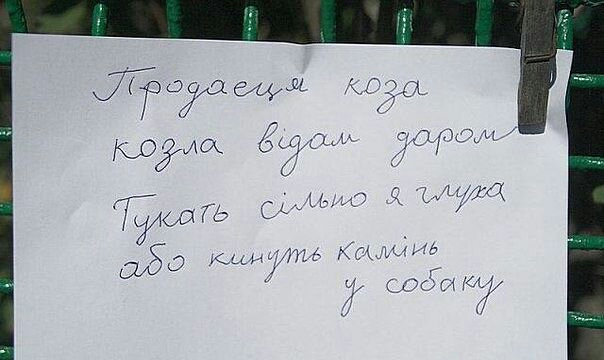 Продаєця коза
козла відам даром
Гукать сільно я глуха
або кинуть камінь
у собаку